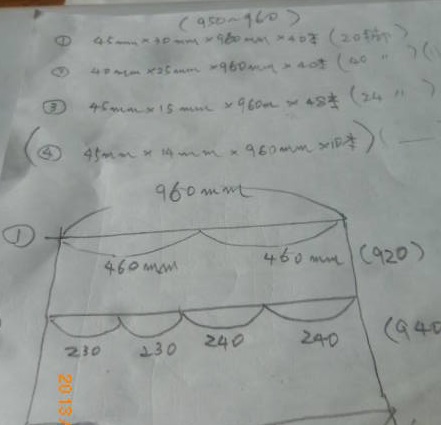 (950~960)
① 45mm×40mm×960mm×40本 (20
② 40mm×25mm×960mm×40本 (40 〃 )
③ 45mm×15mm×960m×48本 (24 〃 )
(④ 45mm×14mm×960mm×10本)
960mm
①
460mm 460mm (920)
230 230 240 240 (940
2013